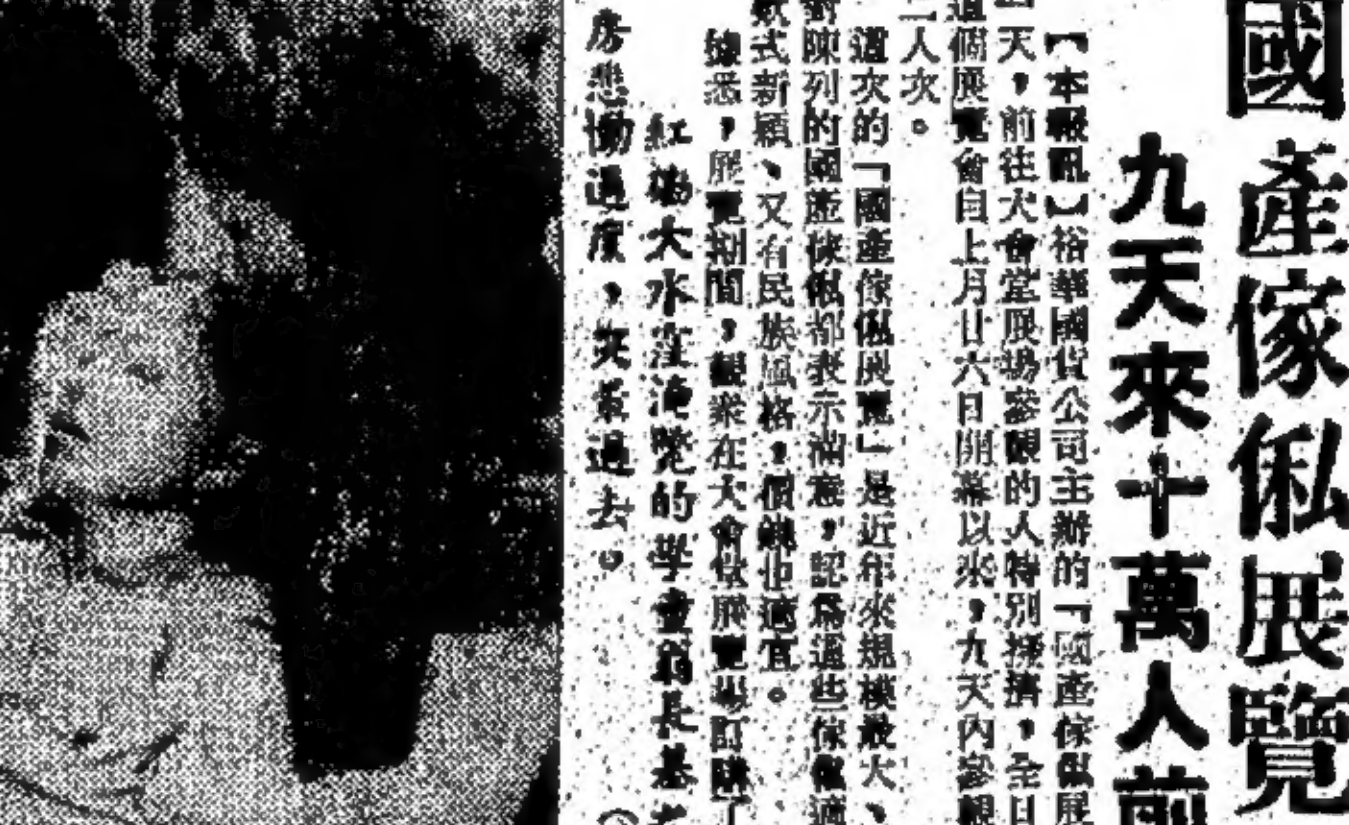 國產傢俬展覽
九天來十萬人前
【本報訊】裕華國貨公司主辦的「國產傢俬展
天,前往大會堂展場參觀的人特別擠擁,全日
這個展覽會自上月廿六日開幕以來,九天內參觀
二人次。
這次的「國產傢俬展覽」是近年來規模最大、
對陳列的國產傢俬都表示滿意,認爲這些傢俬適
款式新穎、又有民族風格,價錢也適宜。
據悉,展覽期間,觀衆在大會堂展覽場訂購了
紅磡大水 淹斃的學童翁長基
房悲慟過度,突 過去。